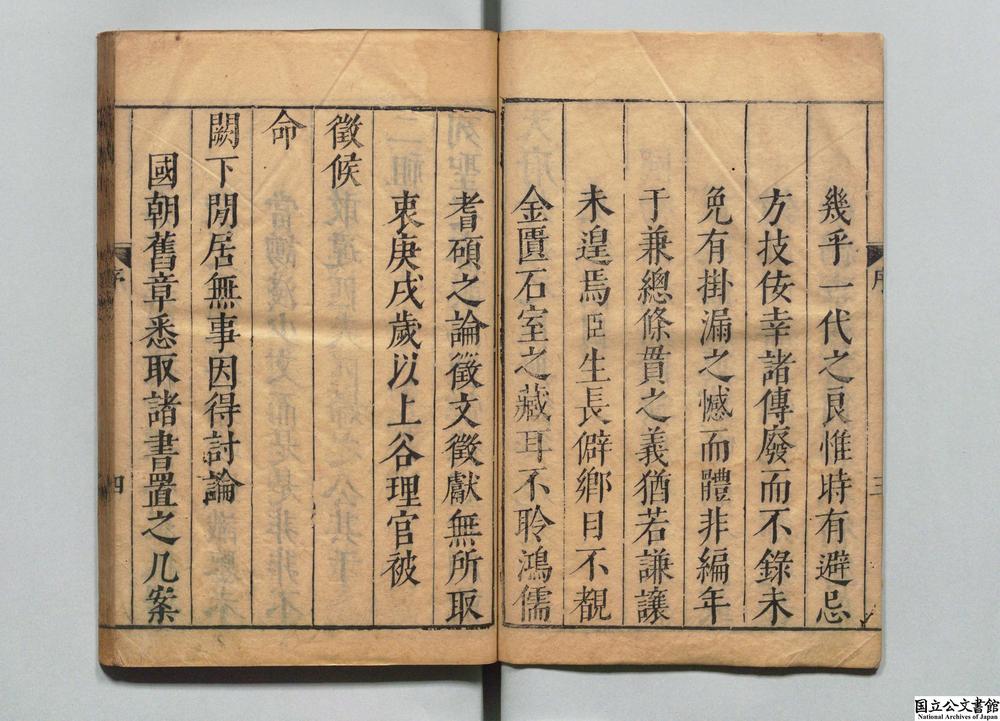 幾乎一代之良惟時有避忌
方技佞幸諸傳廢而不錄未
免有掛漏之憾而體非編年
于兼總條貫之義猶若謙讓
未遑焉臣生長僻鄉目不覩
金匱石室之藏耳不聆鴻儒
耆碩之論徵文徵獻無所取
衷庚戌歲以上谷理官被
徵候
命
闕下閒居無事因得討論
國朝舊章悉取諸書置之几案
序
三
序
四
国立公文書館
National Archives of Japan